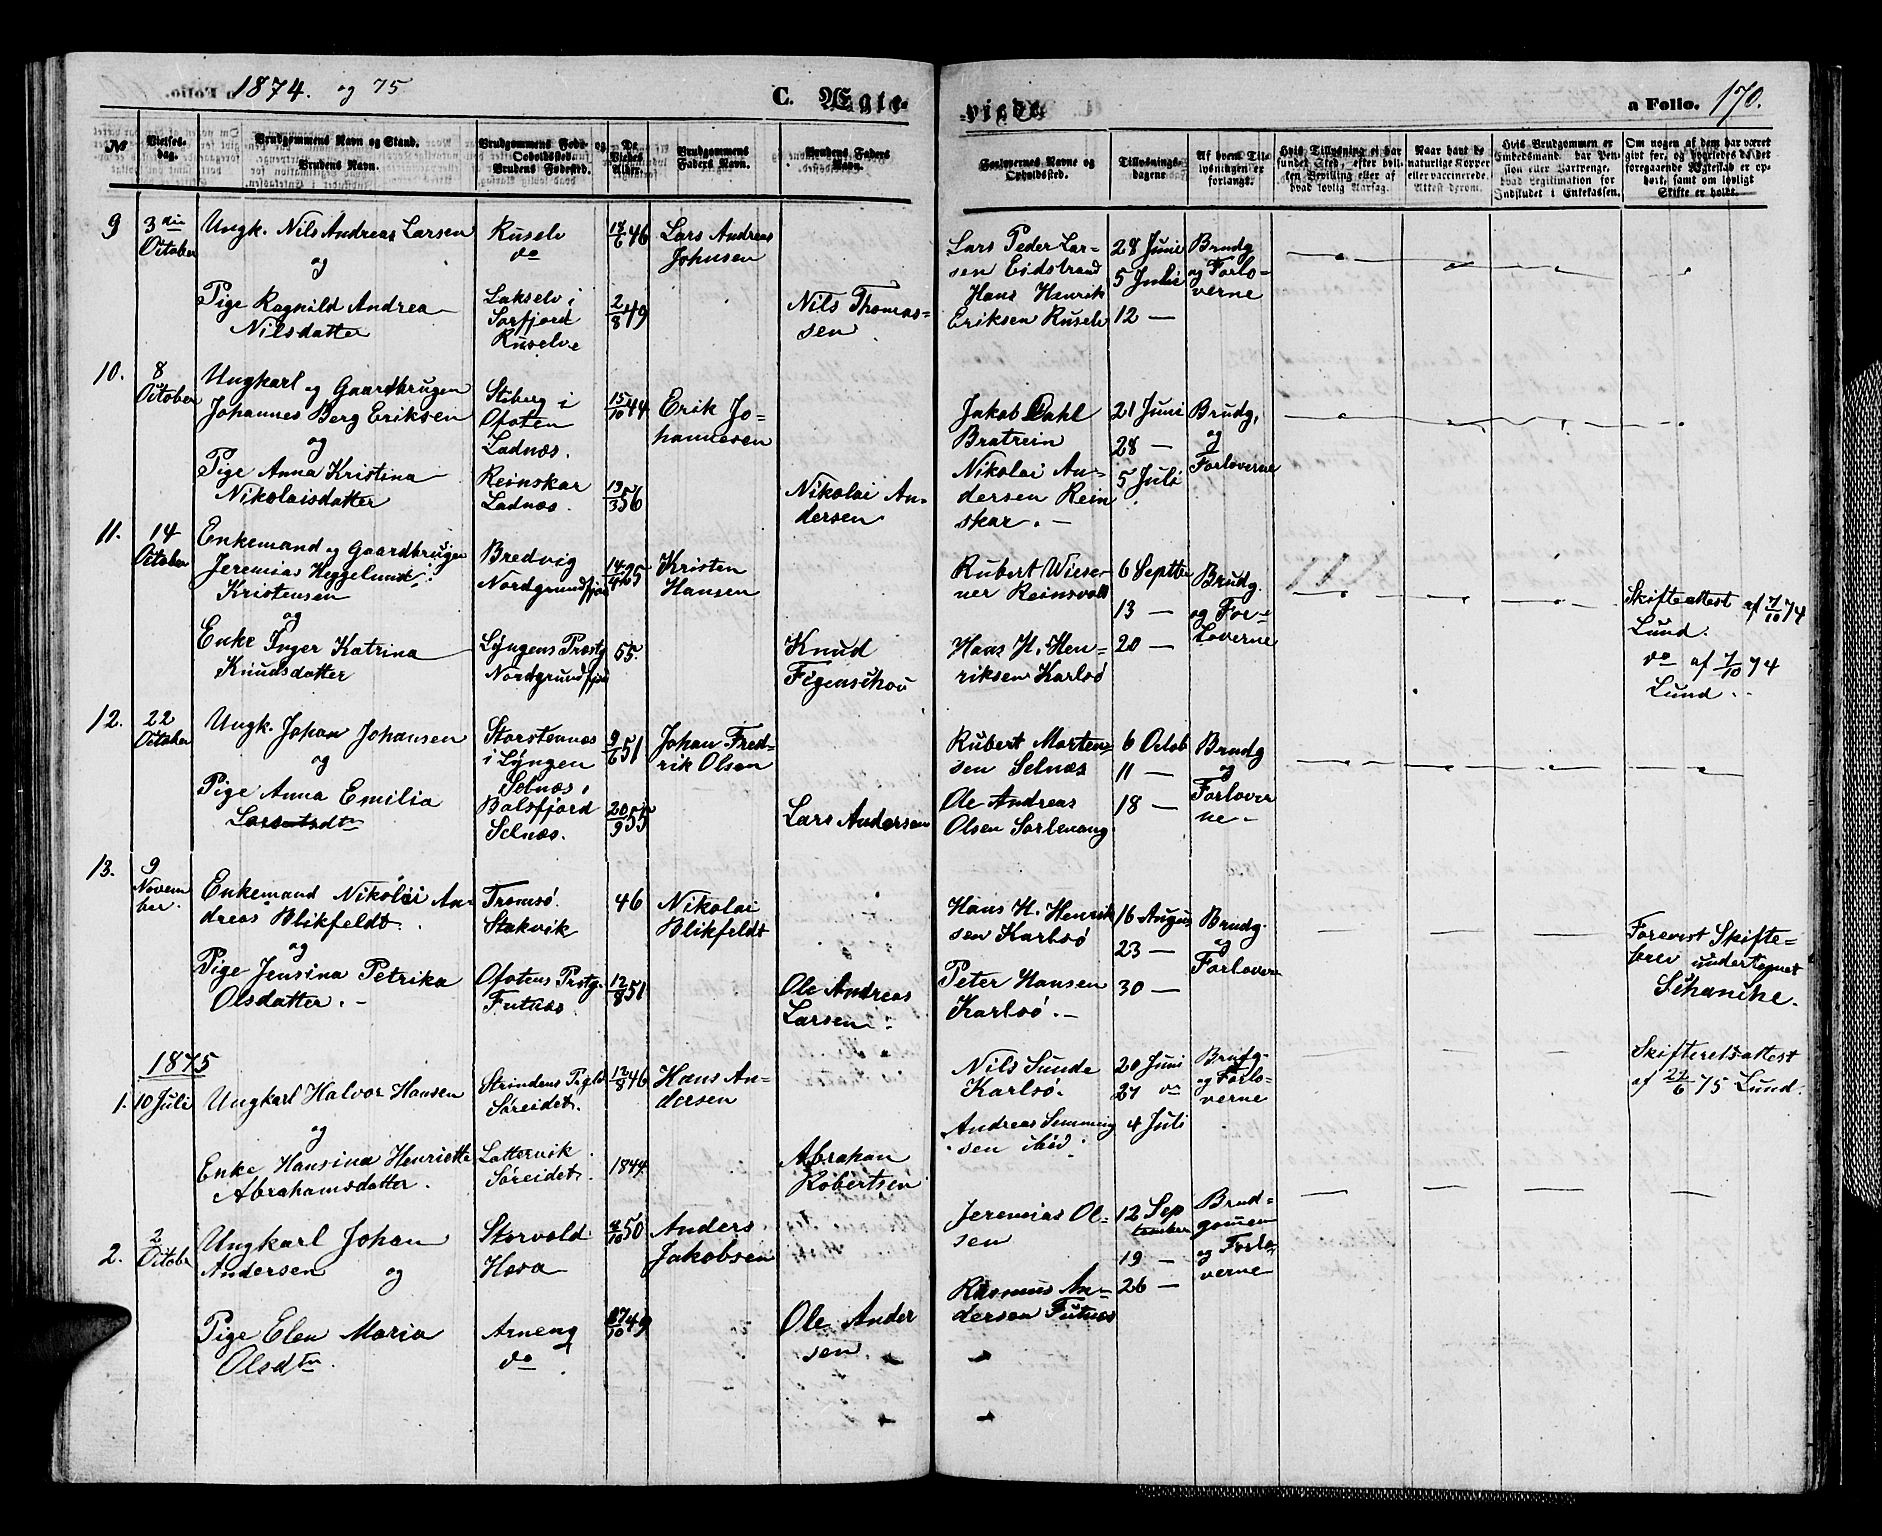 1874. og 75
C. Ægte-
viede
a Folio. 170.
No
Vielses-
dag.
Brudgommens Navn og Stand.
Brudens Navn.
Brudgommens Føde- og
Opholdssted.
Brudens Fødested.
De
Viedes
Alder.
Brudgommens
Faders Navn.
Brudens Faders
Navn.
Forlovernes Navne og
Opholdssted.
Tillysnings-
dagene.
Af hvem Til-
lysningen er
forlangt.
Hvis Tillysning ei har
fundet Sted, efter hvil-
ken Bevilling eller af
hvad lovlig Aarsag.
Naar havt de
naturlige Kopper
eller vaccinerede.
Attest derom.
Hvis Brudgommen er
Embedsmand, har Pen-
sion eller Vartpenge,
hvad Legitimation for
Indskudet i Enkekassen.
Om nogen af dem har været
gift før, og hvorledes da det
foregaaende Ægteskab er op-
hørt, samt om lovligt
Skifte er holdt.
9
3die
October
Ungk. Nils Andreas Larsen
og
Pige Ragnild Andrea
Nilsdatter
Ruselv
do
Lakselv i
Sørfjord
Ruselve
18/6 46
2/8 49
Lars Andreas
Johnsen
Nils Thomas-
sen
Lars Peder Lar-
sen Eidstrand
Hans Henrik
Eriksen Ruselv
28 Juni
5 Julie
12 —
Brudg
og Forlo-
verne
10.
8
October
Ungkarl og Gaardbruger
Johannes Berg Eriksen
og
Pige Anna Kristina
Nikolaisdatter
Stiberg i
Ofoten
Ladnæs.
Reinskar
Ladnæs.
15/10 44
19/3 56
Erik Jo-
hannesen
Nikolai An-
dersen
Jakob Dahl
Bratrein
Nikolai An-
dersen Rein
skar. —
21 Juni
28 —
5 Juli
Brudg,
og
Forloverne
11.
14
October
Enkemand og Gaardbruger
Jeremias Heggelund
Kristensen
og
Enke Inger Katrina
Knudsdatter
Bredvig
Nordgrundfjord
Lyngens Præstg
Nordgrundfjord
14/4 25
55.
Kristen
Hansen
Knud
Figenschou
Rubert Wiese-
ner Reinsvold
Hans H. Hen-
riksen Karlsø
6 Septbr
13 —
20 —
Brudg.
og For-
loverne
Skifteattest af 7/10 74
Lund.
do af 7/10 74
Lund.
12.
22
October
Ungk. Johan Johansen
og
Pige Anna Emilia
Larsdtr
Storstennæs
i Lyngen
Selnæs,
Balsfjord
Selnæs.
9/6 51
20/9 55
Johan Fred-
rik Olsen
Lars Andersen
Rubert Morten-
sen Selnæs
Ole Andreas
Olsen Sørlenang
6 Octob
11 —
18 —
Brudg
og
Forlover
ne-
13.
9
Novem
ber.
Enkemand Nikolai An-
dreas Blikfeldt.
og
Pige Jensina Petrika
Olsdatter. —
Tromsø.
Stakvik
Ofotens Prstg.
Futnæs.
46
12/8 51
Nikolai
Blikfeldt
Ole Andreas
Larsen
Hans H. Henrik
sen Karlsø
Peter Hansen
Karlsø. —
16 August
23 —
30 —
Brudg.
og
Forlovern
Forevist Skifte-
brev undertegnet
Schanche.
1875
1.
10 Juli
Ungkarl Halvor Hansen
og
Enke Hansina Henriette
Abrahamsdatter.
Strindens Pgld
Søreidet.
Lattervik
Søreidet.
12/8 46
1844.
Hans An-
dersen
Abraham
Robertsen
Nils Sunde
Karlsø.
Andreas Simming
sen ibid.
20 Juni
27 do
4 Juli
Brudg-
og Forlo-
verne
Skifteretsattest
af 22/6 75 Lund.
2.
2
October
Ungkarl Johan
Andersen og
Pige Elen Maria
Olsdtr.
Storvold
Høsa
Arneng
do
4/10 50
27/10 49
Anders
Jakobsen
Ole Ander
sen.
Jeremias Ol-
sen
Rasmus An-
dersen Futnæs
12 Sep
tember
19 —
26 —
Brud-
gommen
og Forlo,
verne